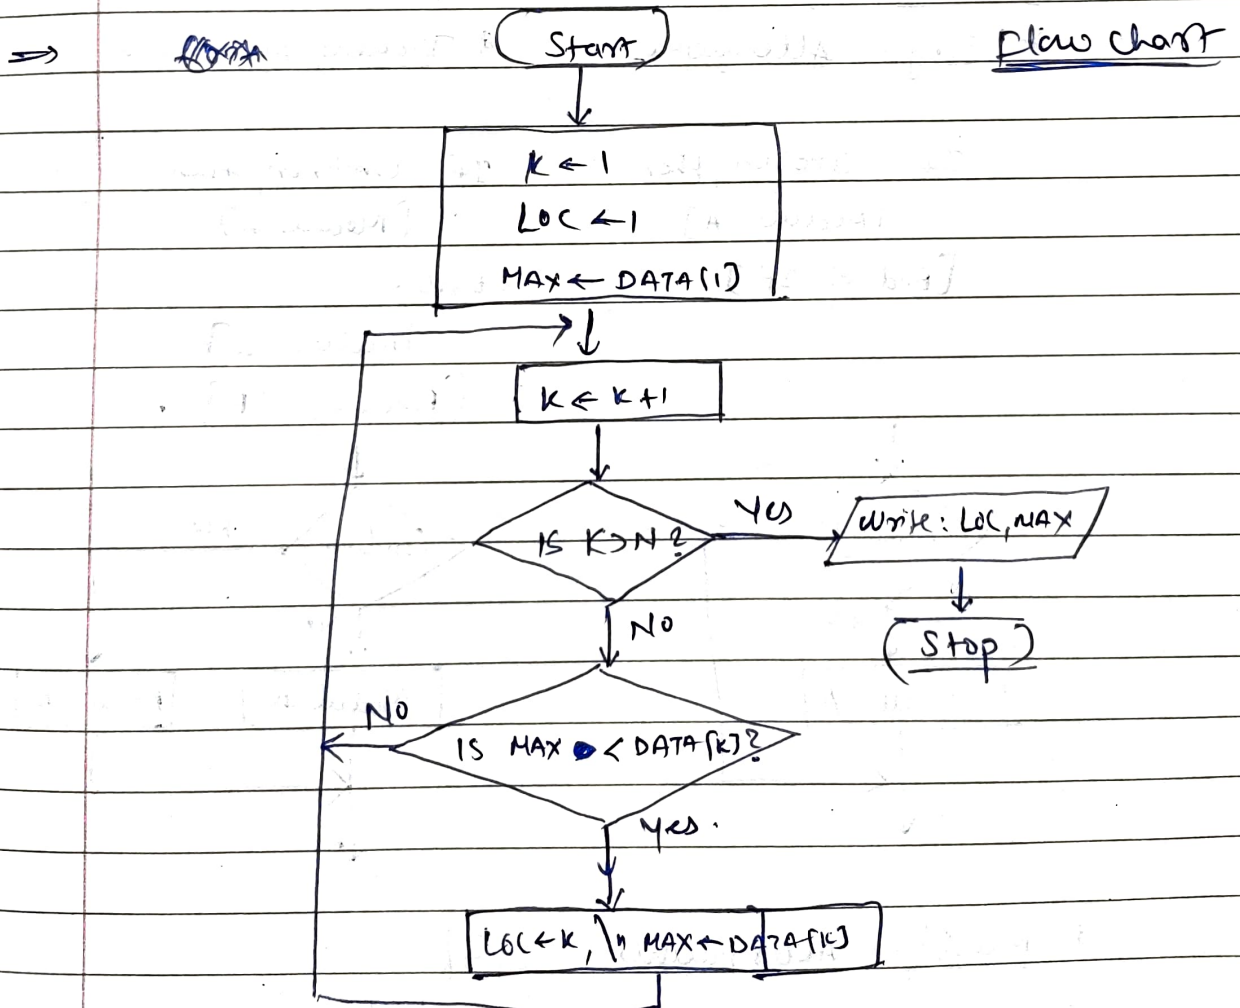 ⇒ Start Flow Chart
K ← 1
LOC ← 1
MAX ← DATA[1]
K ← K+1
IS K>N? Yes Write: LOC, MAX
NO Stop
NO
IS MAX < DATA[K]?
Yes.
LOC ← K, \n MAX ← DATA[K]